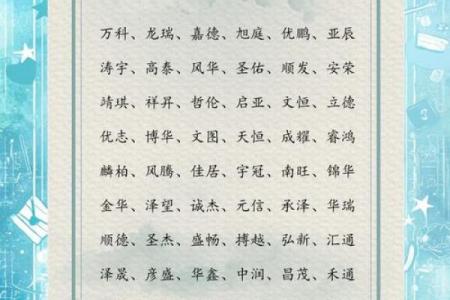 万科、龙瑞、嘉德、旭庭、优鹏、亚辰
涛宇、高泰、风华、圣佑、顺发、安荣
靖琪、祥昇、哲伦、启亚、文恒、立德
优志、博华、文图、天恒、成耀、睿鸿
麟柏、风腾、佳居、宇冠、南旺、锦华
金华、泽望、诚杰、元信、承泽、华瑞
顺德、圣杰、盛畅、搏越、弘新、汇通
泽晟、彦盛、华鑫、中润、昌茂、禾通